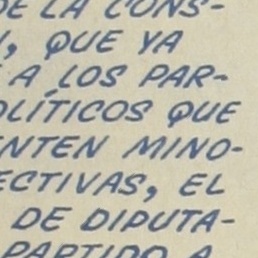 DE LA CONS-
, QUE YA
A LOS PAR-
OLÍTICOS QUE
ENTEN MINO-
ECTIVAS, EL
DE DIPUTA-
PARTIDO A